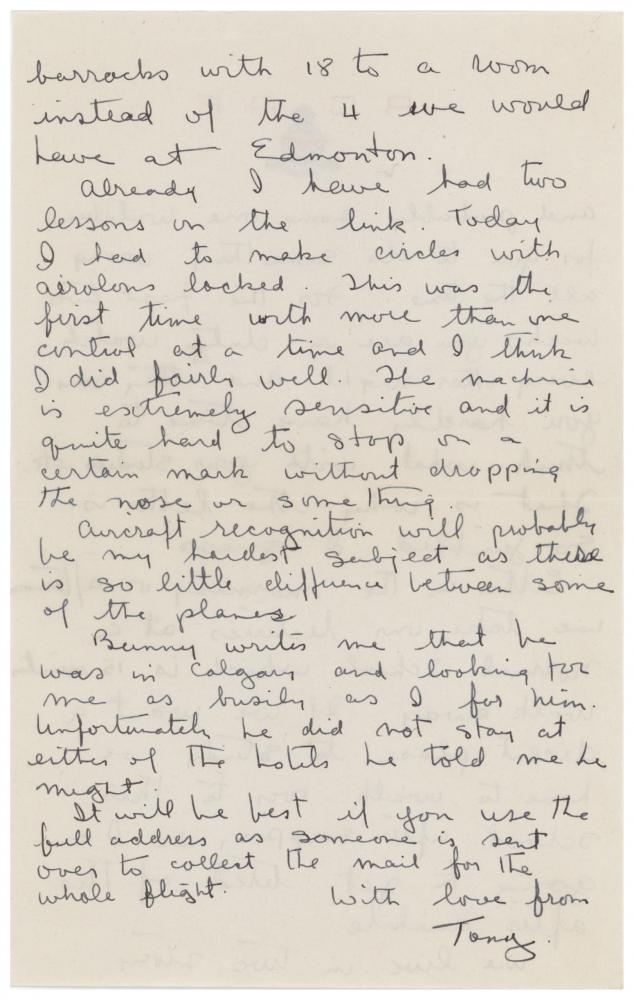 barracks with 18 to a room
instead of the 4 we would
have at Edmonton.
Already I have had two
lessons on the link. Today
I had to make circles with
airolons locked. This was the
first time with more than one
control at a time and I think
I did fairly well. The machine
is extremely sensitive and it is
quite hard to stop on a
certain mark without dropping
the nose or something.
Aircraft recognition will probably
be my hardest subject as there
is so little difference between some
of the planes
Bunny writes me that he
was in Calgary and looking for
me as busily as I for him.
Unfortunately he did not stay at
either of the hotels he told me he
might.
It will be best if you use the
full address as someone is sent
over to collect the mail for the
whole flight. With love from
Tony.